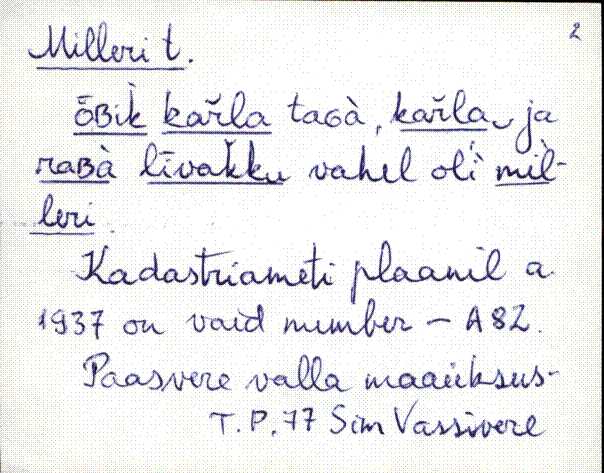 2
Milleri t.
ȪBiK̀ kař̆la taGà, kař̆la ja
raBà līvaǩku vahel olì̬ mìl-
leri.
Kadastriameti plaanil a.
1937 on vaid number - A82.
Paasvere valla maaüksus-
T.P. 77 Sim Vassivere